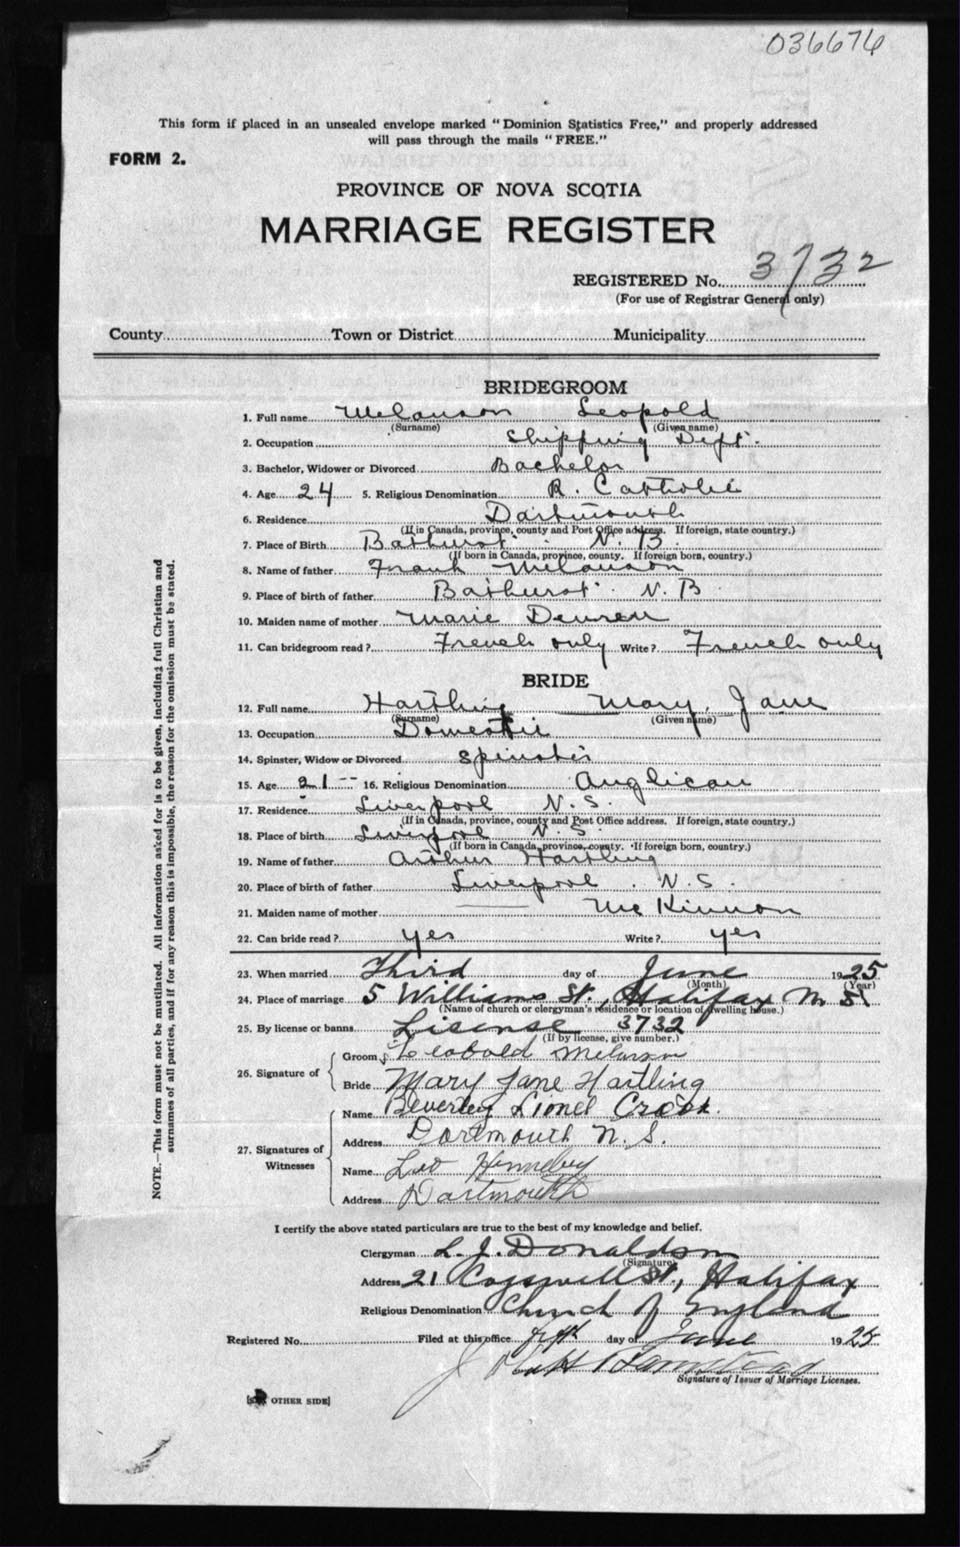 036676
This form if placed in an unsealed envelope marked "Dominion Statistics Free," and properly addressed
will pass through the mails "FREE."
FORM 2.
PROVINCE OF NOVA SCOTIA
MARRIAGE REGISTER
REGISTERED No. 3732
(For use of Registrar General only)
County Town or District Municipality
BRIDEGROOM
1. Full name Melanson Leopold
(Surname) (Given name)
2. Occupation Shipping Dept.
3. Bachelor, Widower or Divorced Bachelor
4. Age 24 5. Religious Denomination R. Catholic
6. Residence Dartmouth
(If in Canada, province, county and Post Office address. If foreign, state country.)
7. Place of Birth Bathurst N. B
(If born in Canada, province, county. If foreign born, country.)
8. Name of father Frank Melanson
9. Place of birth of father Bathurst N. B
10. Maiden name of mother Marie
11. Can bridegroom read? French only Write? French only
BRIDE
12. Full name Hartling Mary Jane
(Surname) (Given name)
13. Occupation Domestic
14. Spinster, Widow or Divorced Spinster
15. Age 21 16. Religious Denomination Anglican
17. Residence Liverpool N. S.
(If in Canada, province, county and Post Office address. If foreign, state country.)
18. Place of birth Liverpool N. S.
(If born in Canada, province, county. If foreign born, country.)
19. Name of father Arthur Hartling
20. Place of birth of father Liverpool. N. S.
21. Maiden name of mother McKinnon
22. Can bride read? yes Write? yes
23. When married Third day of June 1925
(Month) (Year)
24. Place of marriage 5 Williams St., Halifax N S
(Name of church or clergyman's residence or location of dwelling house.)
25. By license or banns Lisense 3732
(If by license, give number.)
26. Signature of
Groom Leobold Melanson
Bride Mary Jane Hartling
27. Signatures of Witnesses
Name Beverley Lionel Crook.
Address Dartmouth N. S.
Name Leo
Address Dartmouth
I certify the above stated particulars are true to the best of my knowledge and belief.
Clergyman L. J. Donaldson
(Signature)
Address 21 Cogswell St., Halifax
Religious Denomination Church of England
Registered No. Filed at this office fifth day of June 1925
Signature of Issuer of Marriage Licenses.
OTHER SIDE]
NOTE.—This form must not be mutilated. All information asked for is to be given, including full Christian and
surnames of all parties, and if for any reason this is impossible, the reason for the omission must be stated.